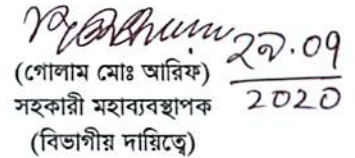 ২৯.০৭
২০২০
(গোলাম মোঃ আরিফ)
সহকারী মহাব্যবস্থাপক
(বিভাগীয় দায়িত্বে)